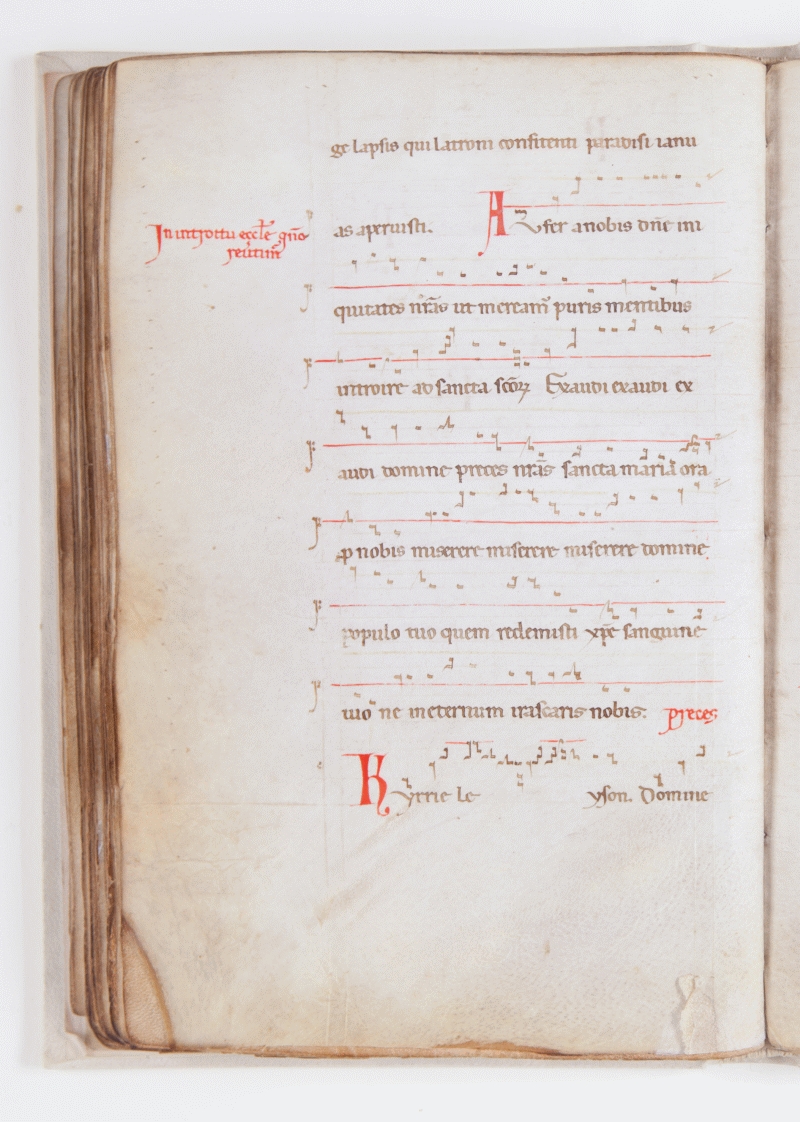 ge lapsis qui latroni confitenti paradisi ianu
as aperuisti. Aufer a nobis dñe ini
In introitu eccl̃e
quitates nr̃as ut meream̃ puris mentibus
introire ad sancta sc̃oꝝ Exaudi exaudi ex
audi domine preces nr̃as sancta maria ora
ꝓ nobis miserere miserere miserere domine
populo tuo quem redemisti xp̃e sanguine
tuo ne in eternum irascaris nobis. preces
Kyrrie le yson. Domine